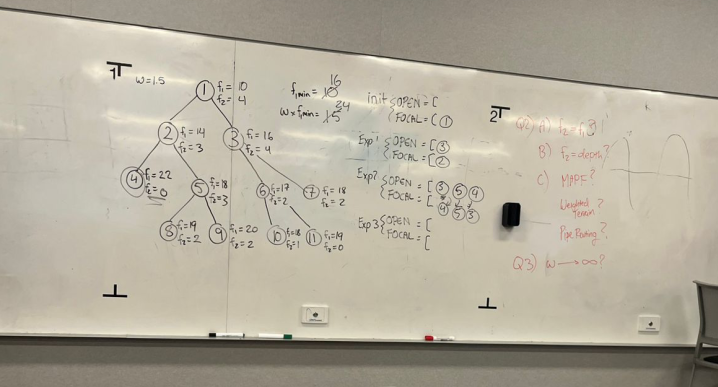 1
w=1.5
1 f₁= 10
f₂= 4
2 f₁= 14
f₂= 3
3 f₁= 16
f₂= 4
4 f₁= 22
f₂= 0
5 f₁= 18
f₂= 3
6 f₁= 17
f₂= 2
7 f₁= 18
f₂= 2
8 f₁= 19
f₂= 2
9 f₁= 20
f₂= 2
10 f₁= 18
f₂= 1
11 f₁= 19
f₂= 0
16
f₁min = 10
24
w×f₁min= 15
init { OPEN = [
FOCAL = [ 1
Exp1 { OPEN = [ 3
FOCAL = [ 2
Exp2 { OPEN = [ 3 5 4
FOCAL = [ 4 5 3
Exp3 { OPEN = [
FOCAL = [
2
Q2) A) f₂=f₁?
B) f₂=depth?
C) MAPF?
Weighted Terrain ?
Pipe Routing?
Q3) w → ∞?